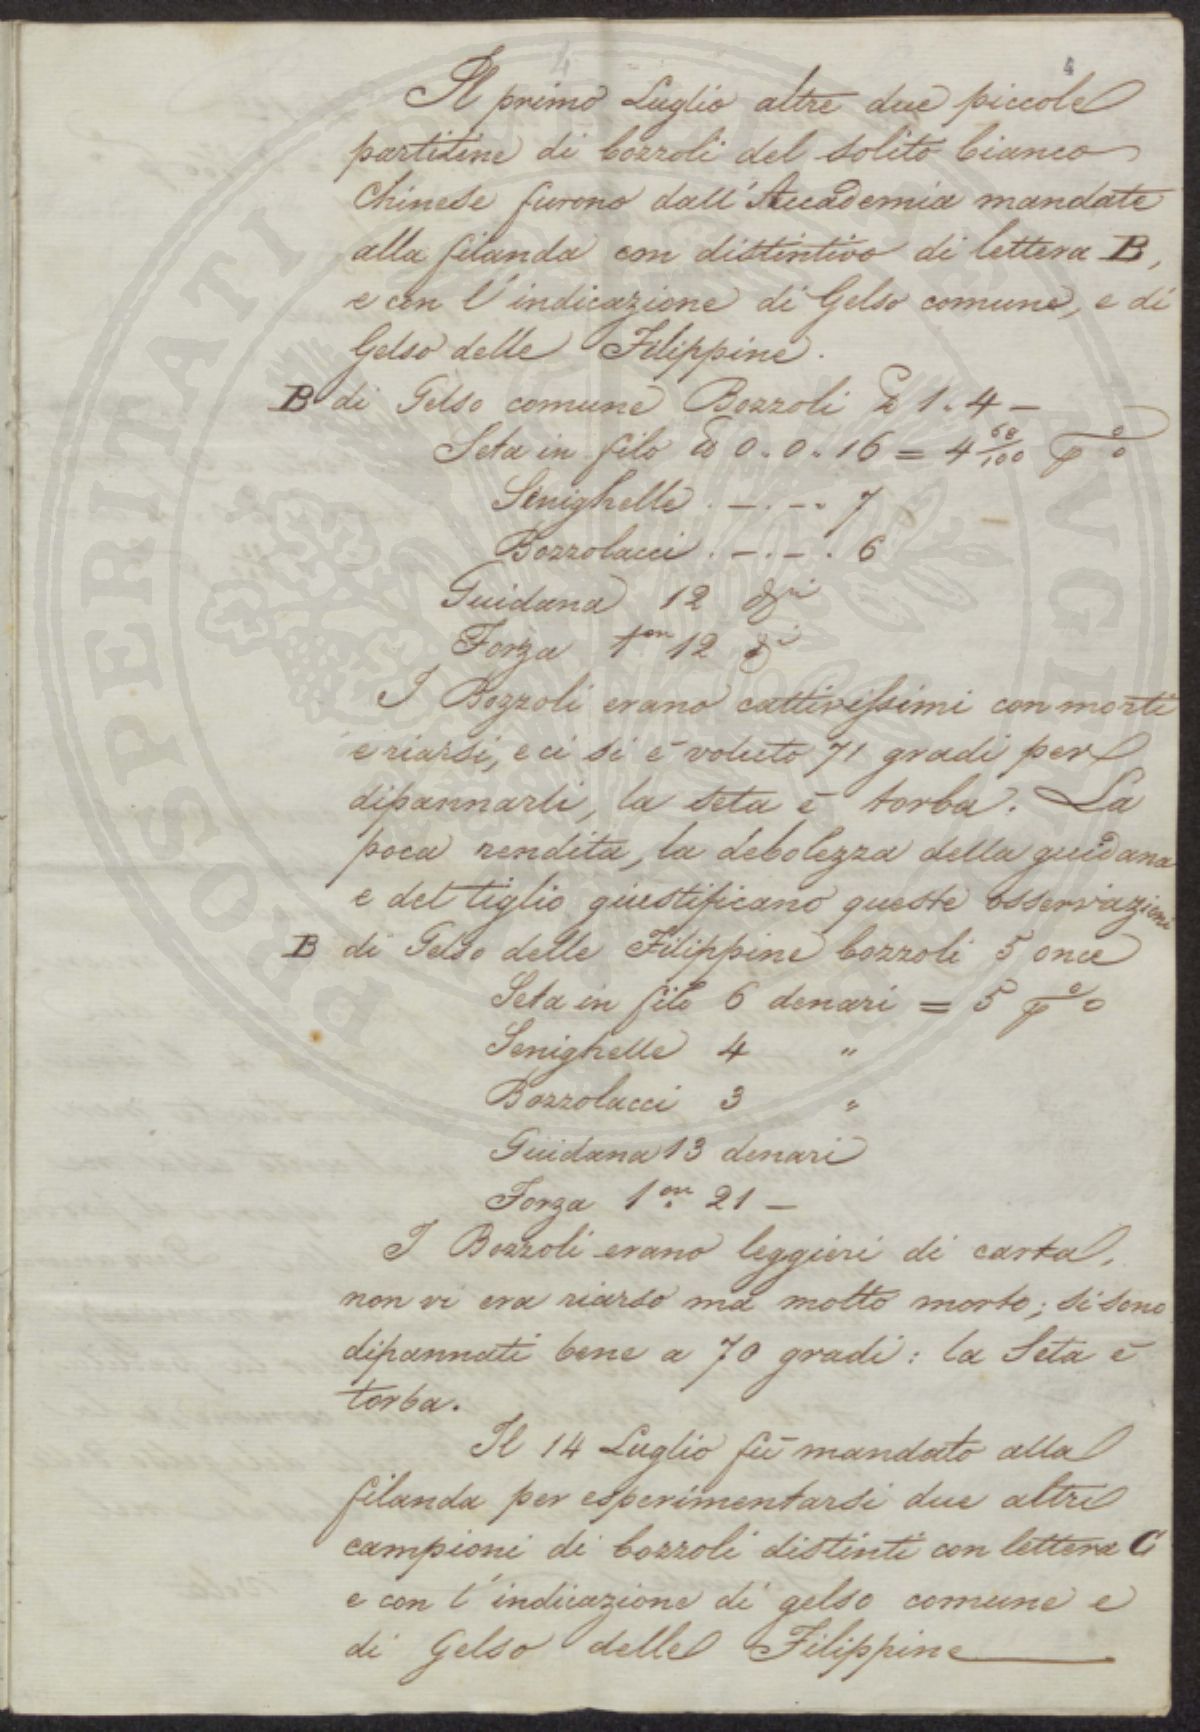 4
Il primo Luglio altre due piccole
partitine di bozzoli del solito bianco
Chinese furono dall'Accademia mandate
alla filanda con distintivo di lettera B,
e con l'indicazione di Gelso comune, e di
Gelso delle Filippine.
B di Gelso comune Bozzoli 1.4 —
Seta in filo 0.0.16 = 4 68/100 p%
Senighelle . — . — . 7
Bozzolacci . — . — . 6
Guidana 12
Forza 1on 12
I Bozzoli erano cattivissimi con morti
e riarsi, e ci si è voluto 71 gradi per
dipannarli, la seta è torba. La
poca rendita, la debolezza della guidana
e del tiglio giustificano queste osservazioni
B di Gelso delle Filippine bozzoli 5 once
Seta in filo 6 denari = 5 p%
Senighelle 4 "
Bozzolacci 3 "
Guidana 13 denari
Forza 1on 21 —
I Bozzoli erano leggieri di carta,
non vi era riarso ma molto morto; si sono
dipannati bene a 70 gradi: la Seta è
torba.
Il 14 Luglio fù mandato alla
filanda per esperimentarsi due altri
campioni di bozzoli distinti con lettera C
e con l'indicazione di gelso comune e
di Gelso delle Filippine
PROSPERITATI PUBLICAE AUGENDAE